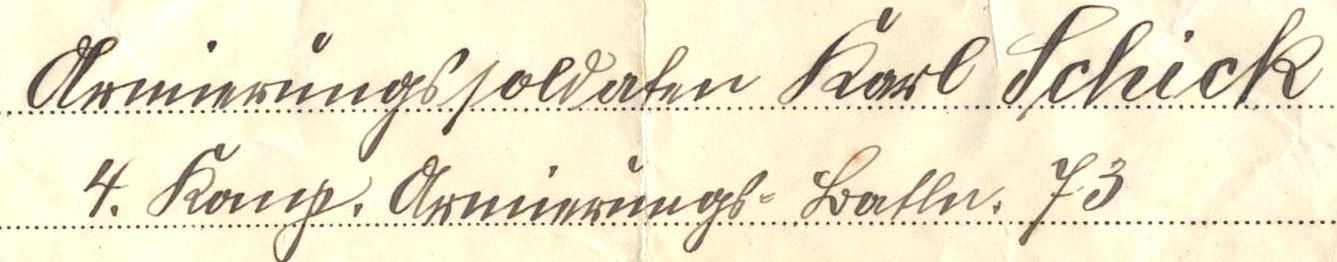 Armierungssoldaten Karl Schick
4. Komp. Armierungs- Batln. 73